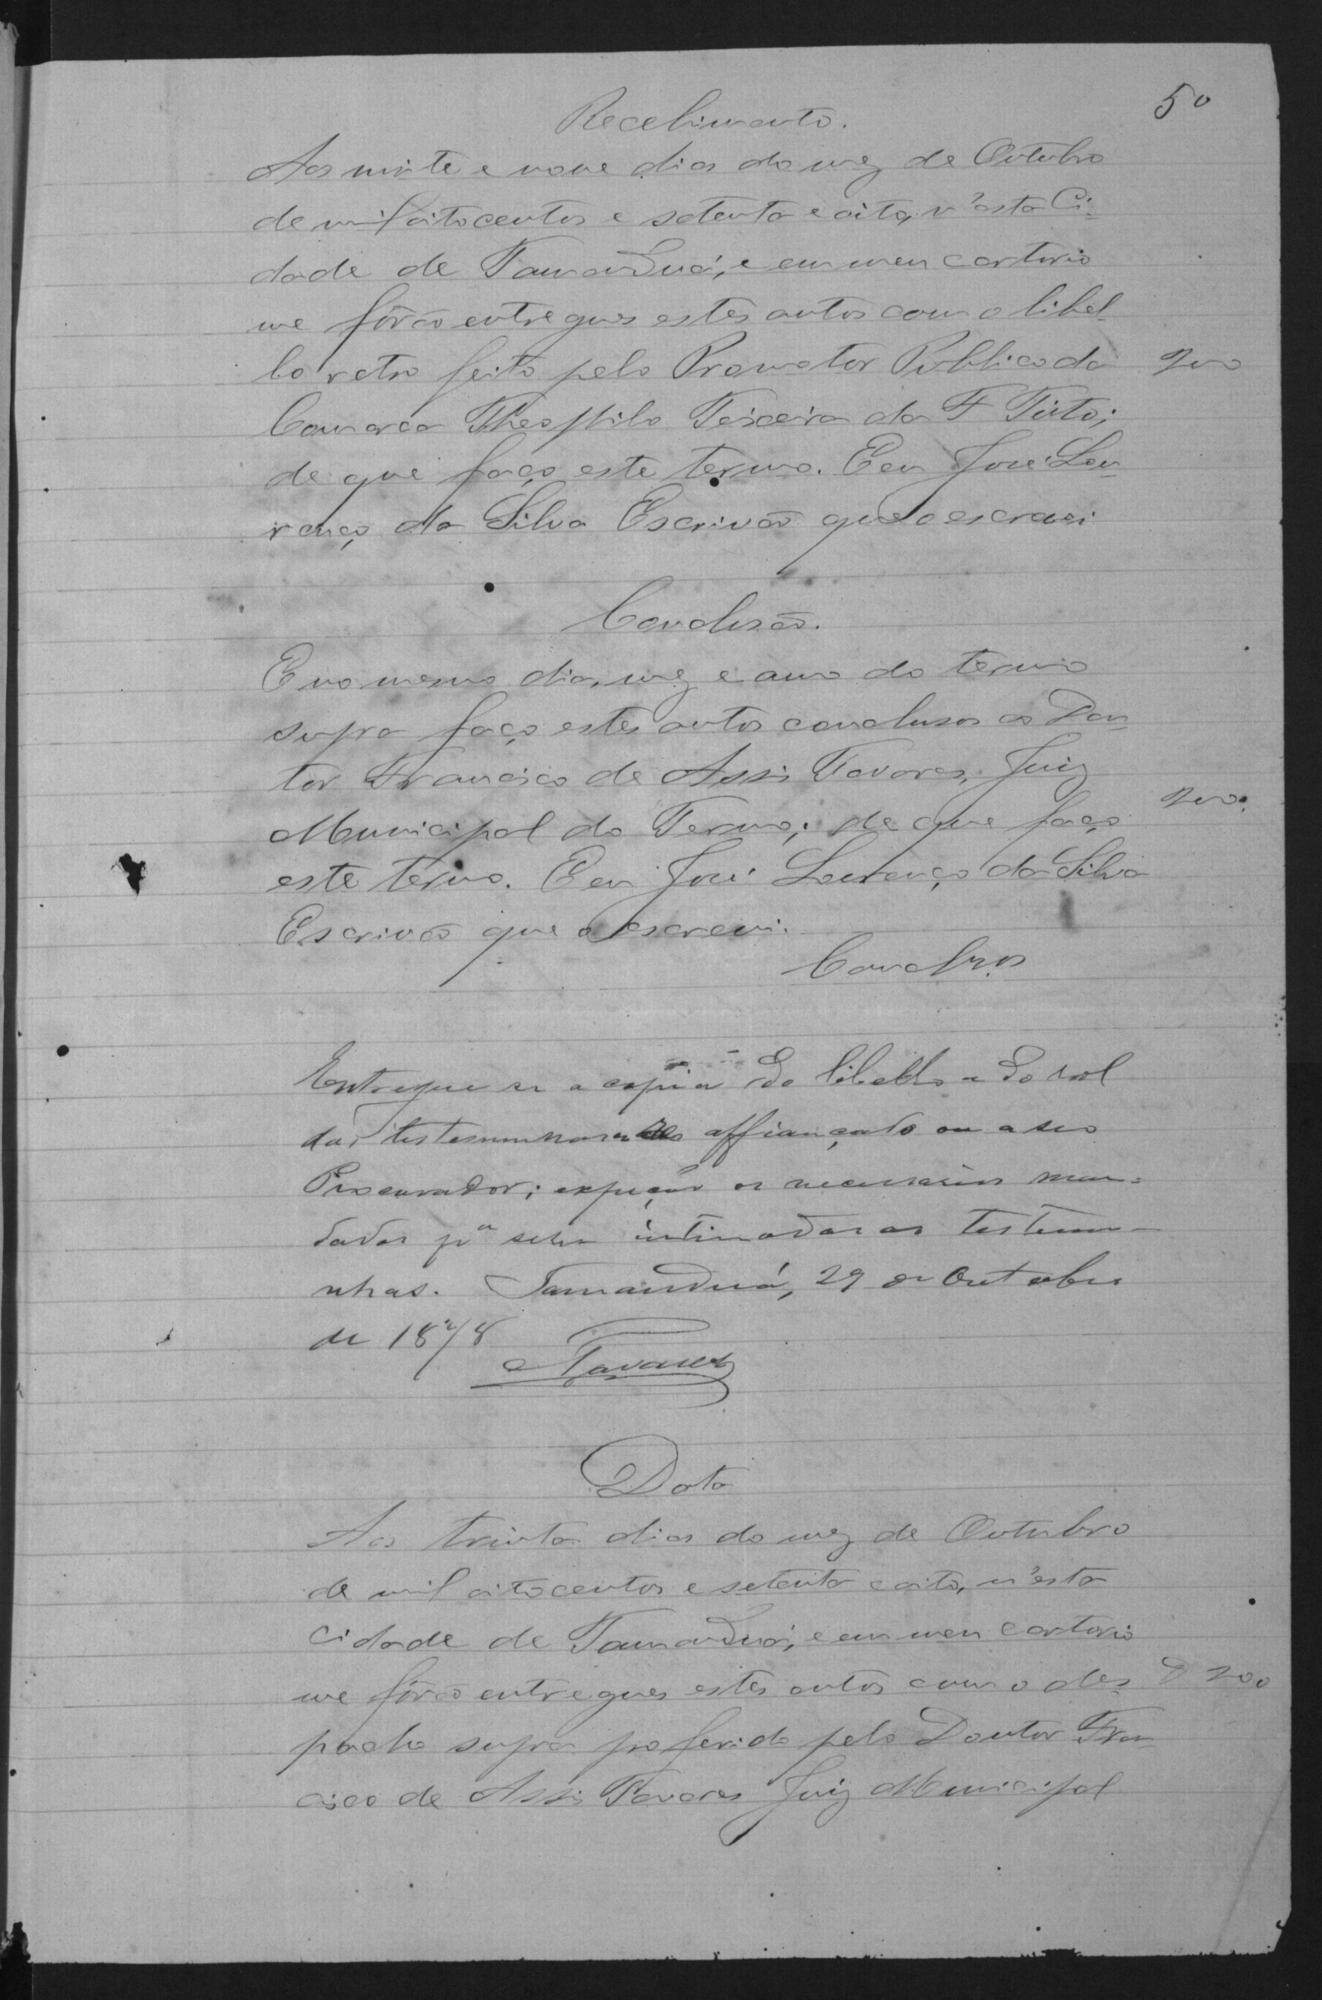 50
Recebimento.
Aos vinte e nove dias do mez de Outubro
de mil oitocentos e setenta e oito, n'esta Ci-
dade de Tamanduá, e em meu cartorio
me fôrão entregues estes autos com o libel-
lo retro feito pelo Promotor Publico da 200
Comarca Theophilo Teixeira da F Tinto;
de que faço este termo. Eeu José Lou-
renço da Silva Escrivão que o escrevi
Conclusão.
E no mesmo dia, mez e anno do termo
supra faço estes autos conclusos ao Dou-
tor Francisco de Assis Tavares, Juiz
Municipal do Termo; de que faço 200.
este termo. Eeu José Lourenço da Silva
Escrivão que o escrevi.
Conclsos
Entregue se a copia do libello e do rol
das testemunhas ao affiançado ou a seo
Procurador; expeção os necessarios man-
dados pª serem intimadas as testemu-
nhas. Tamanduá, 29 de Outubro
de 1878
Tavares
Data
Aos trinta dias do mez de Outubro
de mil oitocentos e setenta e oito, n'esta
cidade de Tamanduá, e em meu cartorio
me fôrão entregues estes autos com o des- 200
pacho supra proferido pelo Doutor Fran-
cisco de Assis Tavares Juiz Municipal